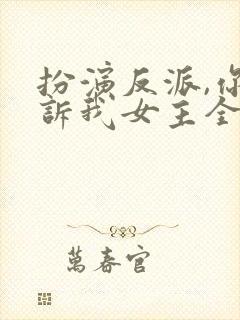 扮演反派,你
訴我女主全
萬春官